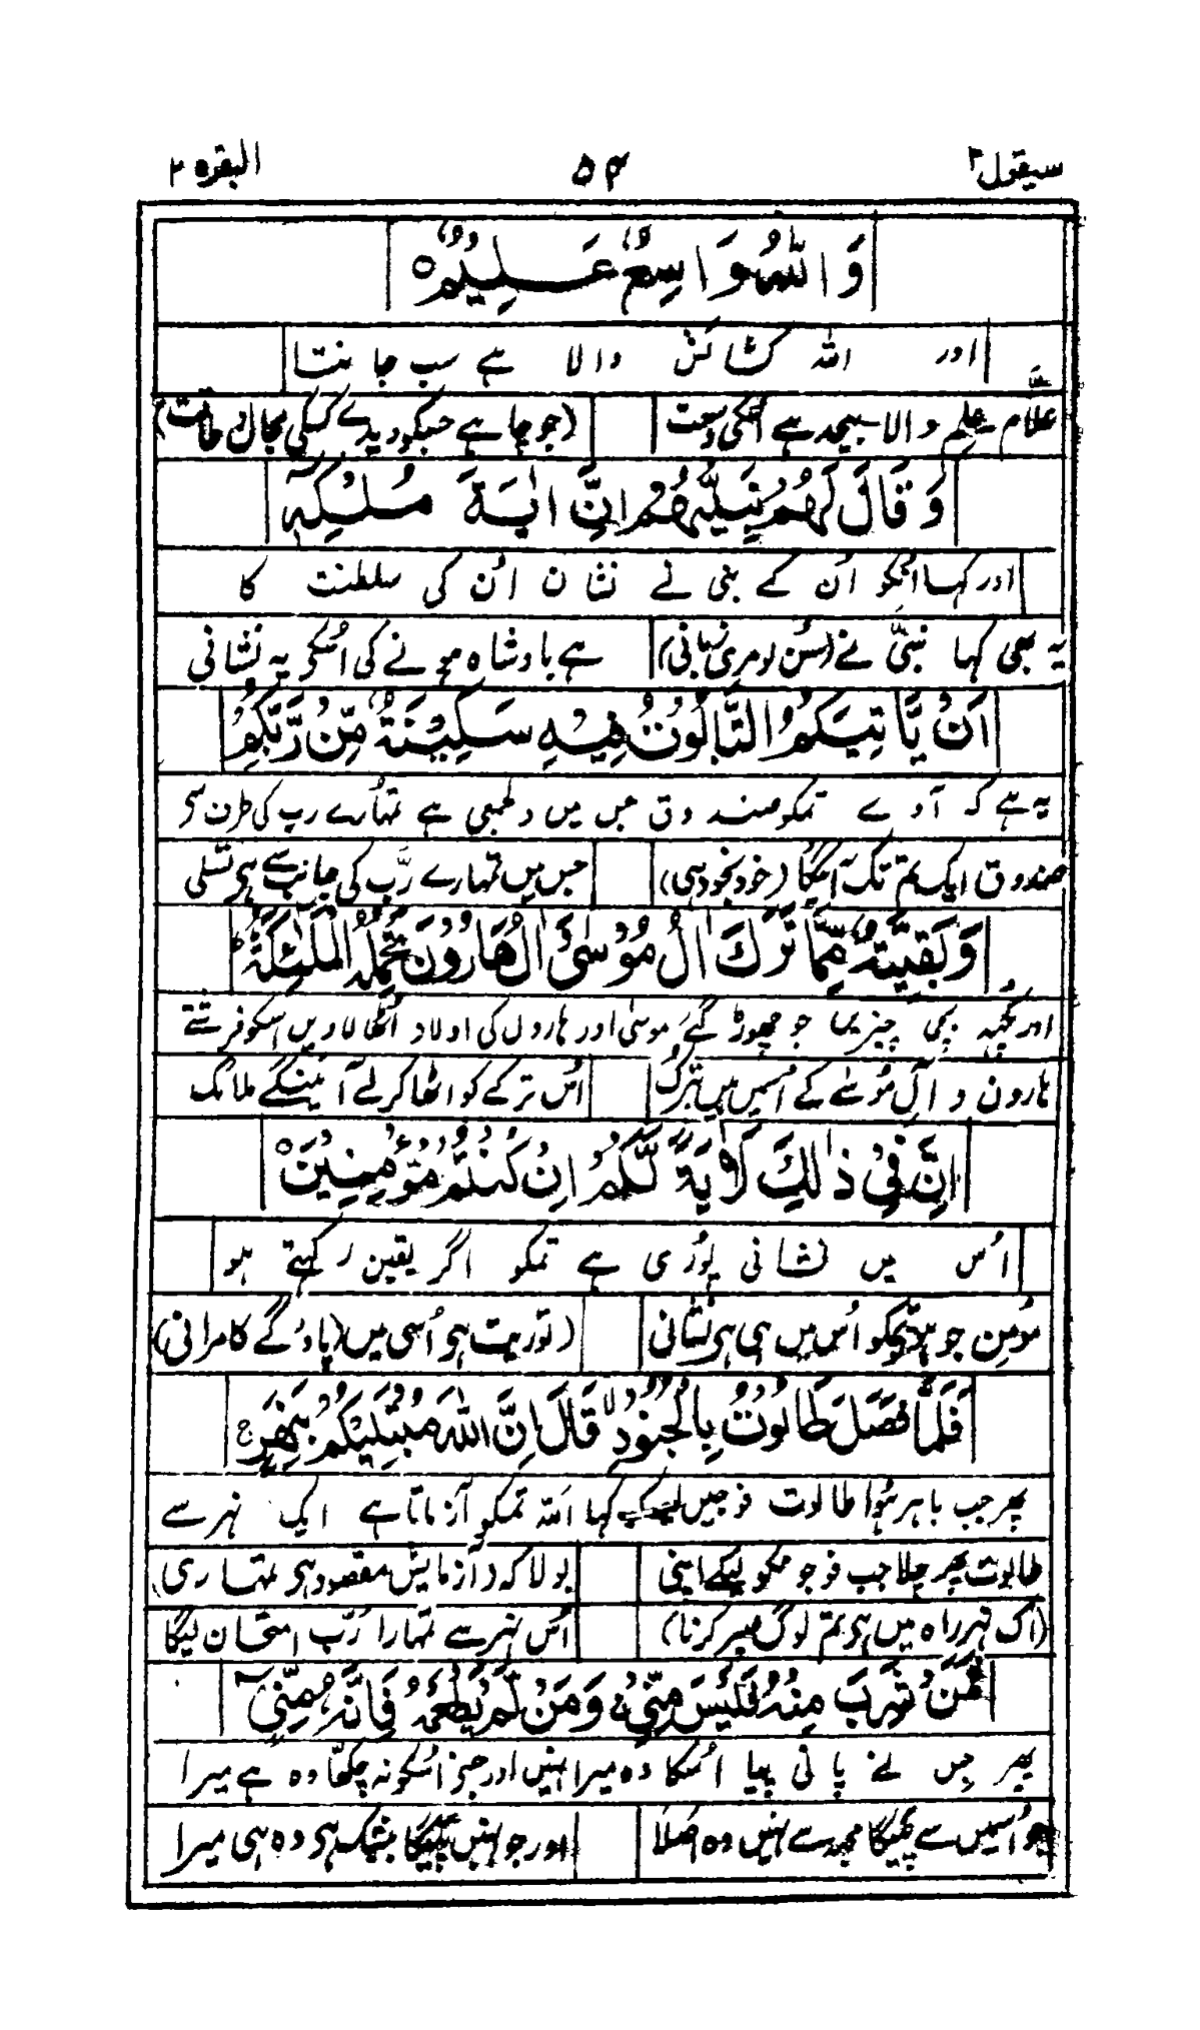 سیقول ۲ ۵۴ البقرہ ۲
وَاللّٰهُ وَاسِعٌ عَلِيْمٌ ○
اور اللہ کشائش والا ہے سب جانتا
علام ہے علم والا بیحد ہے اُسکی وسعت (جو چاہے جسکو دیدے کسکی مجال و طاقت)
وَقَالَ لَهُمْ نَبِيُّهُمْ اِنَّ اٰيَةَ مُلْكِهٖٓ
اور کہا انکو اُن کے نبی نے نشان اُن کی سلطنت کا
یہ بھی کہا نبیؑ نے (سُن لو مری زبانی) ہے بادشاہ ہونے کی اُسکی یہ نشانی
اَنْ يَّاْتِيَكُمُ التَّابُوْتُ فِيْهِ سَكِيْنَةٌ مِّنْ رَّبِّكُمْ
یہ ہے کہ آوے تمکو صندوق جس میں دلجمعی ہے تمہارے رب کی طرف سی
صندوق ایک تم تک آئیگا (خود بخود ہی) جس میں تمہارے رَبّ کی جانب سے ہی تسلی
وَبَقِيَّةٌ مِّمَّا تَرَكَ اٰلُ مُوْسٰى وَاٰلُ هَارُوْنَ تَحْمِلُهُ الْمَلٰٓئِكَةُ ط
اور کچہہ بچی چیزیں جو چھوڑ گئے موسٰی اور ہارون کی اولاد اُٹھا لاویں اسکو فرشتے
ہارون و آلِ مُوسٰے کے اُسمیں ہیں تبرک اُس ترکے کو اٹھا کر لے آئینگے ملائک
اِنَّ فِيْ ذٰلِكَ لَاٰيَةً لَّكُمْ اِنْ كُنْتُمْ مُّؤْمِنِيْنَ ○
اُس میں نشانی پُوری ہے تمکو اگر یقین رکہتے ہو
مُومِن جو ہو تو تمکو اُس میں ہی ہی نشانی (توریت ہی اُسی میں (پاؤ گے کامرانی)
فَلَمَّا فَصَلَ طَالُوْتُ بِالْجُنُوْدِ لا قَالَ اِنَّ اللّٰهَ مُبْتَلِيْكُمْ بِنَهَرٍ ج
پھر جب باہر ہُوا طالوت فوجیں لیکے کہا اللہ تمکو آزماتا ہے ایک نہر سے
طالوت پھر چلا جب فوجونکو لیکے اپنی بولا کہ (آزمایش مقصود ہی تمہاری)
(اک نہر راہ میں ہی تم لوگ صبر کرنا) اُس نہر سے تمہارا رَبّ امتحان لیگا
فَمَنْ شَرِبَ مِنْهُ فَلَيْسَ مِنِّيْ ج وَمَنْ لَّمْ يَطْعَمْهُ فَاِنَّهٗ مِنِّيْٓ
پھر جس نے پانی پیا اُسکا وہ میرا نہیں اور جسنے اُسکو نہ چکھا وہ ہے میرا
جو اُسمیں سے پئیگا مجھ سے نہیں وہ اصلا اور جو نہیں پئیگا بیشک ہی وہ ہی میرا